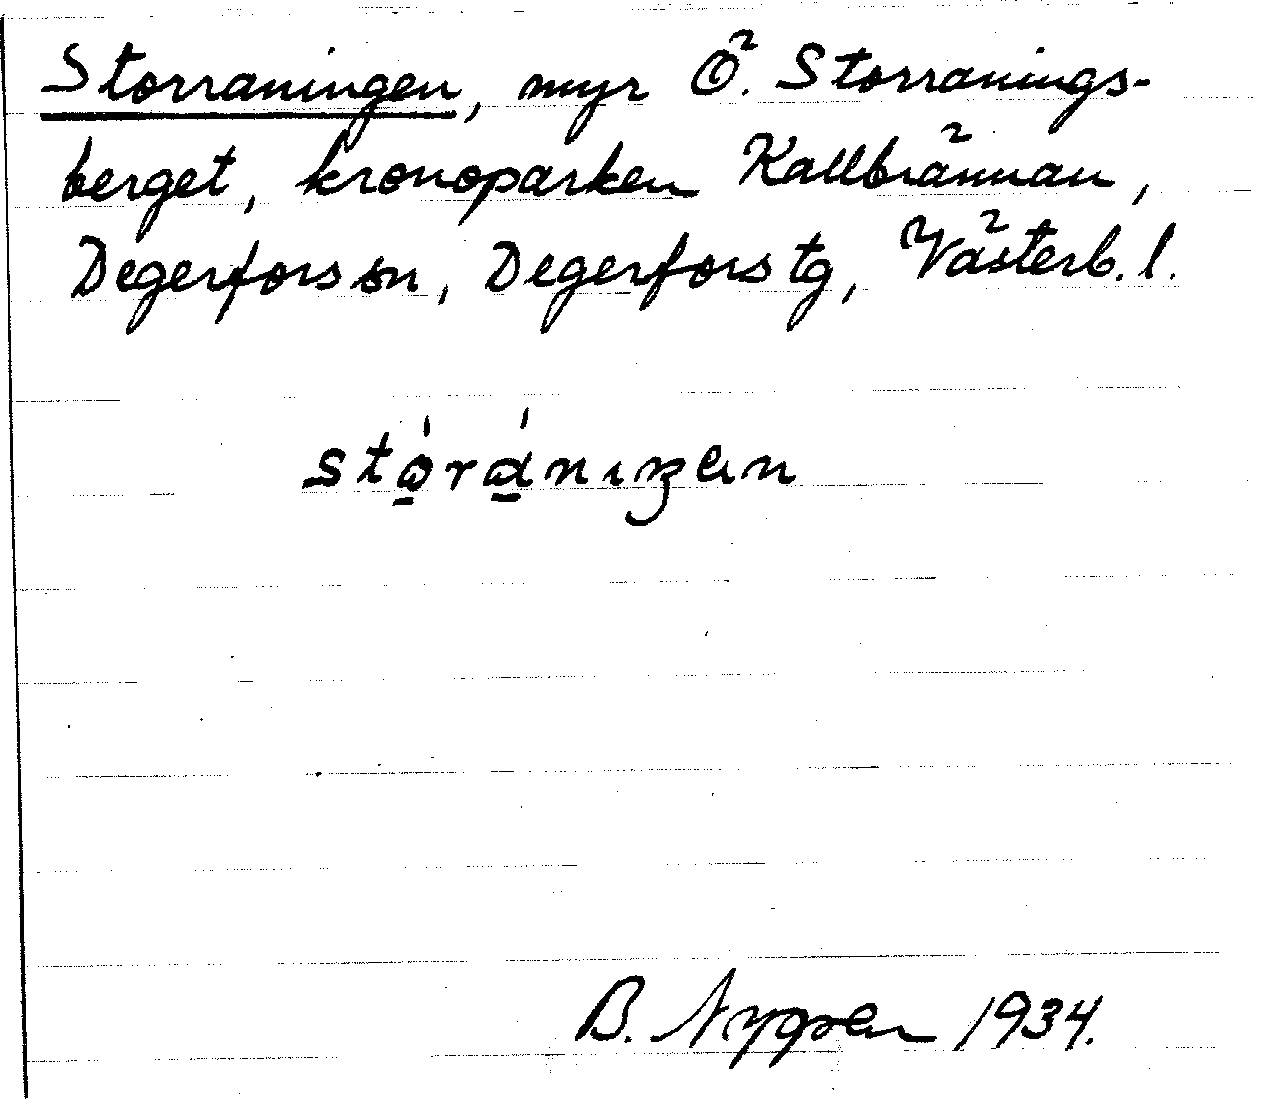 Storraningen, myr Ö. Storranings-
berget, kronoparken Kallbrännan,
Degerfors sn, Degerfors tg, Västerb. l.
stǫ́rą́nıŋen
B. Nygren 1934.